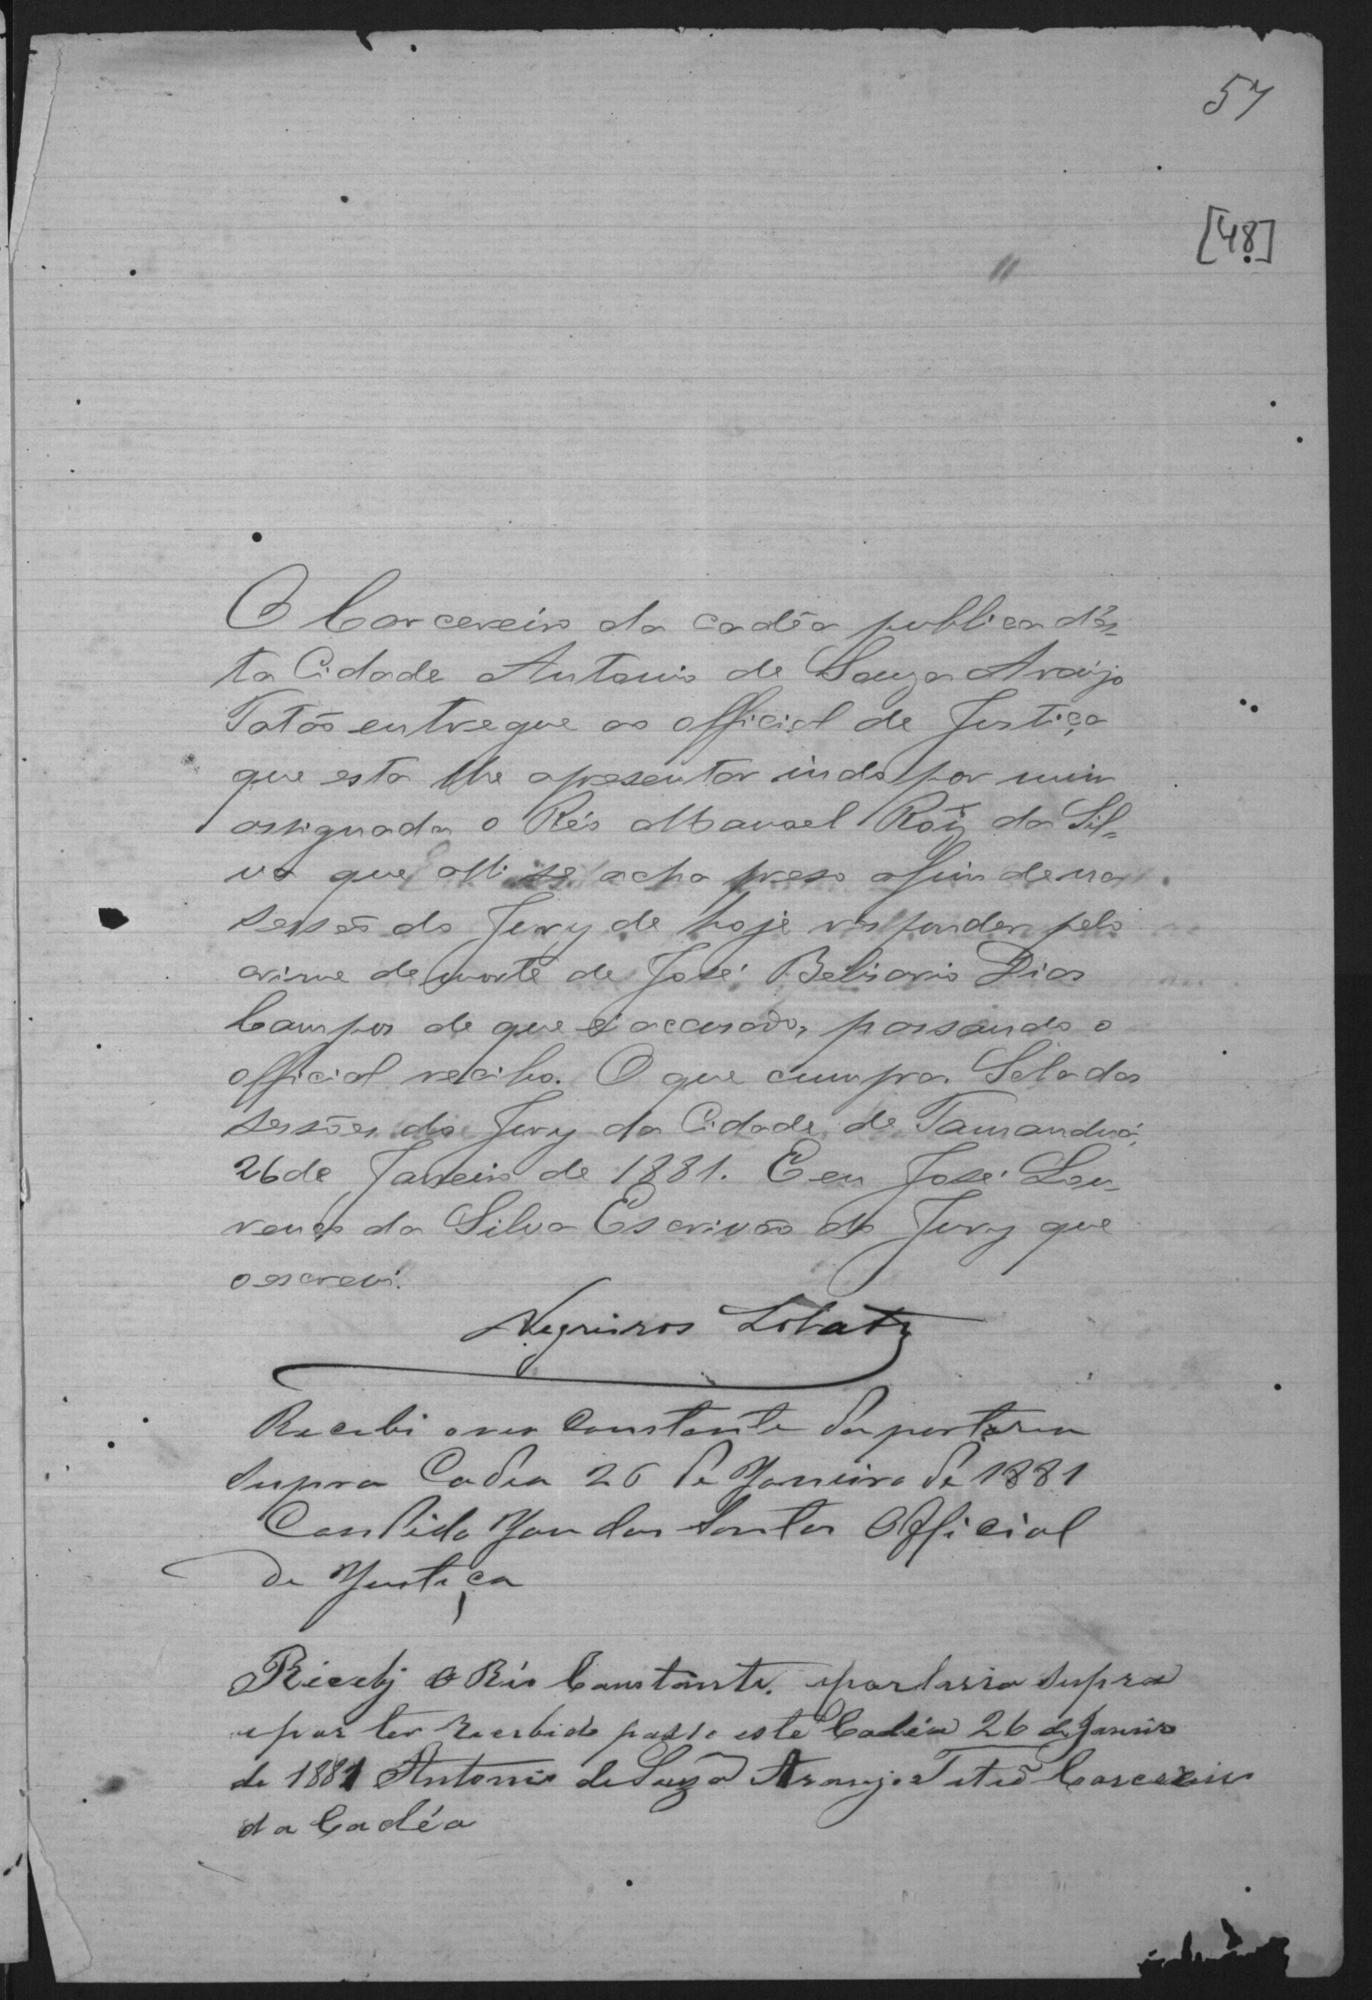 57
[48]
O Carcereiro da cadêa publica d'es-
ta Cidade Antonio de Souza Araujo
Tatão entregue ao official de Justiça
que esta lhe apresentar indo por mim
assignada o Réo Manoel Roiz da Sil-
va que alli se acha preso afim de na
sessão do Jury de hoje responder pelo
crime de morte de José Belisario Dias
Campos de que é accusado, passando o
official recibo. O que cumpra. Sala das
sessões do Jury da Cidade de Tamanduá,
26 de Janeiro de 1881. E eu José Lou-
renço da Silva Escrivão do Jury que
o escrevi.
Negreiros Lobato
Recebi o reo Constante da portaria
supra Cadea 26 de Janeiro de 1881
Candido dos Santos Official
de Justiça
Recebj o Réo Constante. portaria supra
e por ter recebido passo este Cadéa 26 de Janeiro
de 1881 Antonio de Souza Araujo Carcereiro
da Cadéa